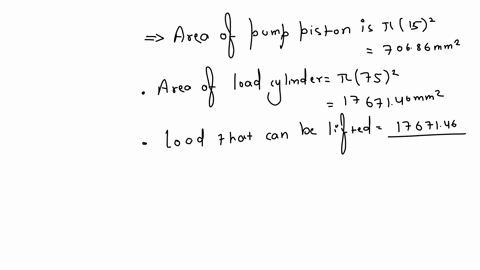 ⇒ Area of pump piston is π(15)²
= 706.86mm²
• Area of load cylinder = π(75)²
= 17671.46mm²
• Load that can be lifted = 17671.46